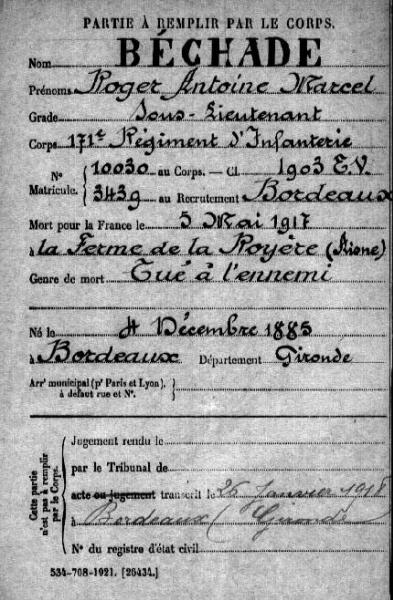 PARTIE À REMPLIR PAR LE CORPS.
Nom BÉCHADE
Prénoms Roger Antoine Marcel
Grade Sous-Lieutenant
Corps 171e Régiment d'Infanterie
N° Matricule. { 10030 au Corps. — Cl. 1903 E.V.
3439 au Recrutement Bordeaux
Mort pour la France le 5 Mai 1917
à la Ferme de la Royère (Aisne)
Genre de mort Tué à l'ennemi
Né le 4 Décembre 1885
à Bordeaux Département Gironde
Arrt municipal (pr Paris et Lyon), à défaut rue et N°. }
Cette partie n'est pas à remplir par le Corps.
Jugement rendu le
par le Tribunal de
acte ou jugement transcrit le 26 Janvier 1918
à Bordeaux (Gironde
N° du registre d'état civil
534-708-1921. [26434.]